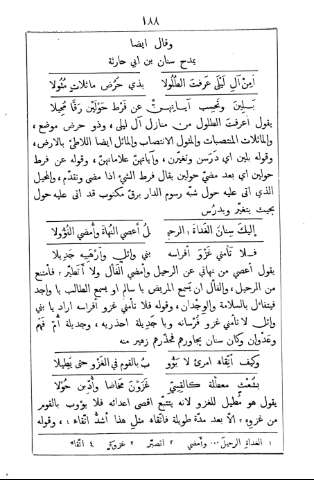 ١٨٨
وقال ايضا
يمدح سنان بن ابي حارثة
أمِنْ آلِ لَيْلَى عَرَفْتَ الطُّلُولَا بذي حُرُضٍ ماثلاتٍ مُثُولا
بَلِينَ وتَحْسِبُ آياتِهِنَّ عن فَرْطِ حَوْلَيْنِ رَقًّا مُحِيلا
يقول أعرفت الطلول من منازل آل ليلى ، وذو حرض موضع ،
والماثلات المنتصبات والمثول الانتصاب والماثل ايضا اللاطئ بالارض،
وقوله بلين اي دَرَسن وتغيرن، وآياتهنّ علاماتهنّ، وقوله عن فرط
حولين اي بعد مضيّ حولين يقال فرط الشئ اذا مضى وتقدّم، والمحيل
الذي اتى عليه حول شبّه رسوم الدار برقّ مكتوب قد اتى عليه حول
بحيث يتغيّر ويدرُس
إليكَ سِنانَ الغَداةَ الرحيلُ أعصي النُّهاةَ وأمضي الفُؤولا
فلا تأمني غَزْوَ أفراسه بني وائلٍ وارْهَبِيهِ جَدِيلا
يقول أعصي من نهاني عن الرحيل وأمضي الفأل ولا أتطيّر، فأمتنع
من الرحيل، والفأل ان يسمع المريض يا سالم او يسمع الطالب يا واجد
فيتفائل بالسلامة والوجدان، وقوله فلا تأمني غزو أفراسه اراد يا بني
وائل لا تأمني غزو فرسانه ويا جديلة احذريه، وجديلة أمّ فهم
وعَدْوان وكان سنان يجاورهم فحذّرهم زهير منه
وكيف اتّقاء امرئ لا يَؤُوبُ بالقوم في الغزو حتى يُطيلا
بشُعْثٍ معطَّلةٍ كالقِسيّ غَزَوْنَ مخاضًا وأُدِّين حُولا
يقول هو مطيل للغزو لانه يتتبّع اقصى اعدائه فلا يؤوب بالقوم
من غزوه الّا بعد مدّة طويلة فاتّقاء مثل هذا أشدّ اتّقاء، وقوله
١ الغداة الرحيل ... وأمضي